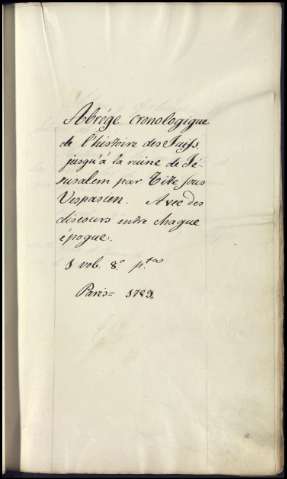 Abrége cronologique
de l'histoire des Juifs
jusqu'à la ruine de Jé-
rusalem par Tite sous
Vespasien. Avec des
discours entre chaque
époque.
1 vol. 8°
Paris=